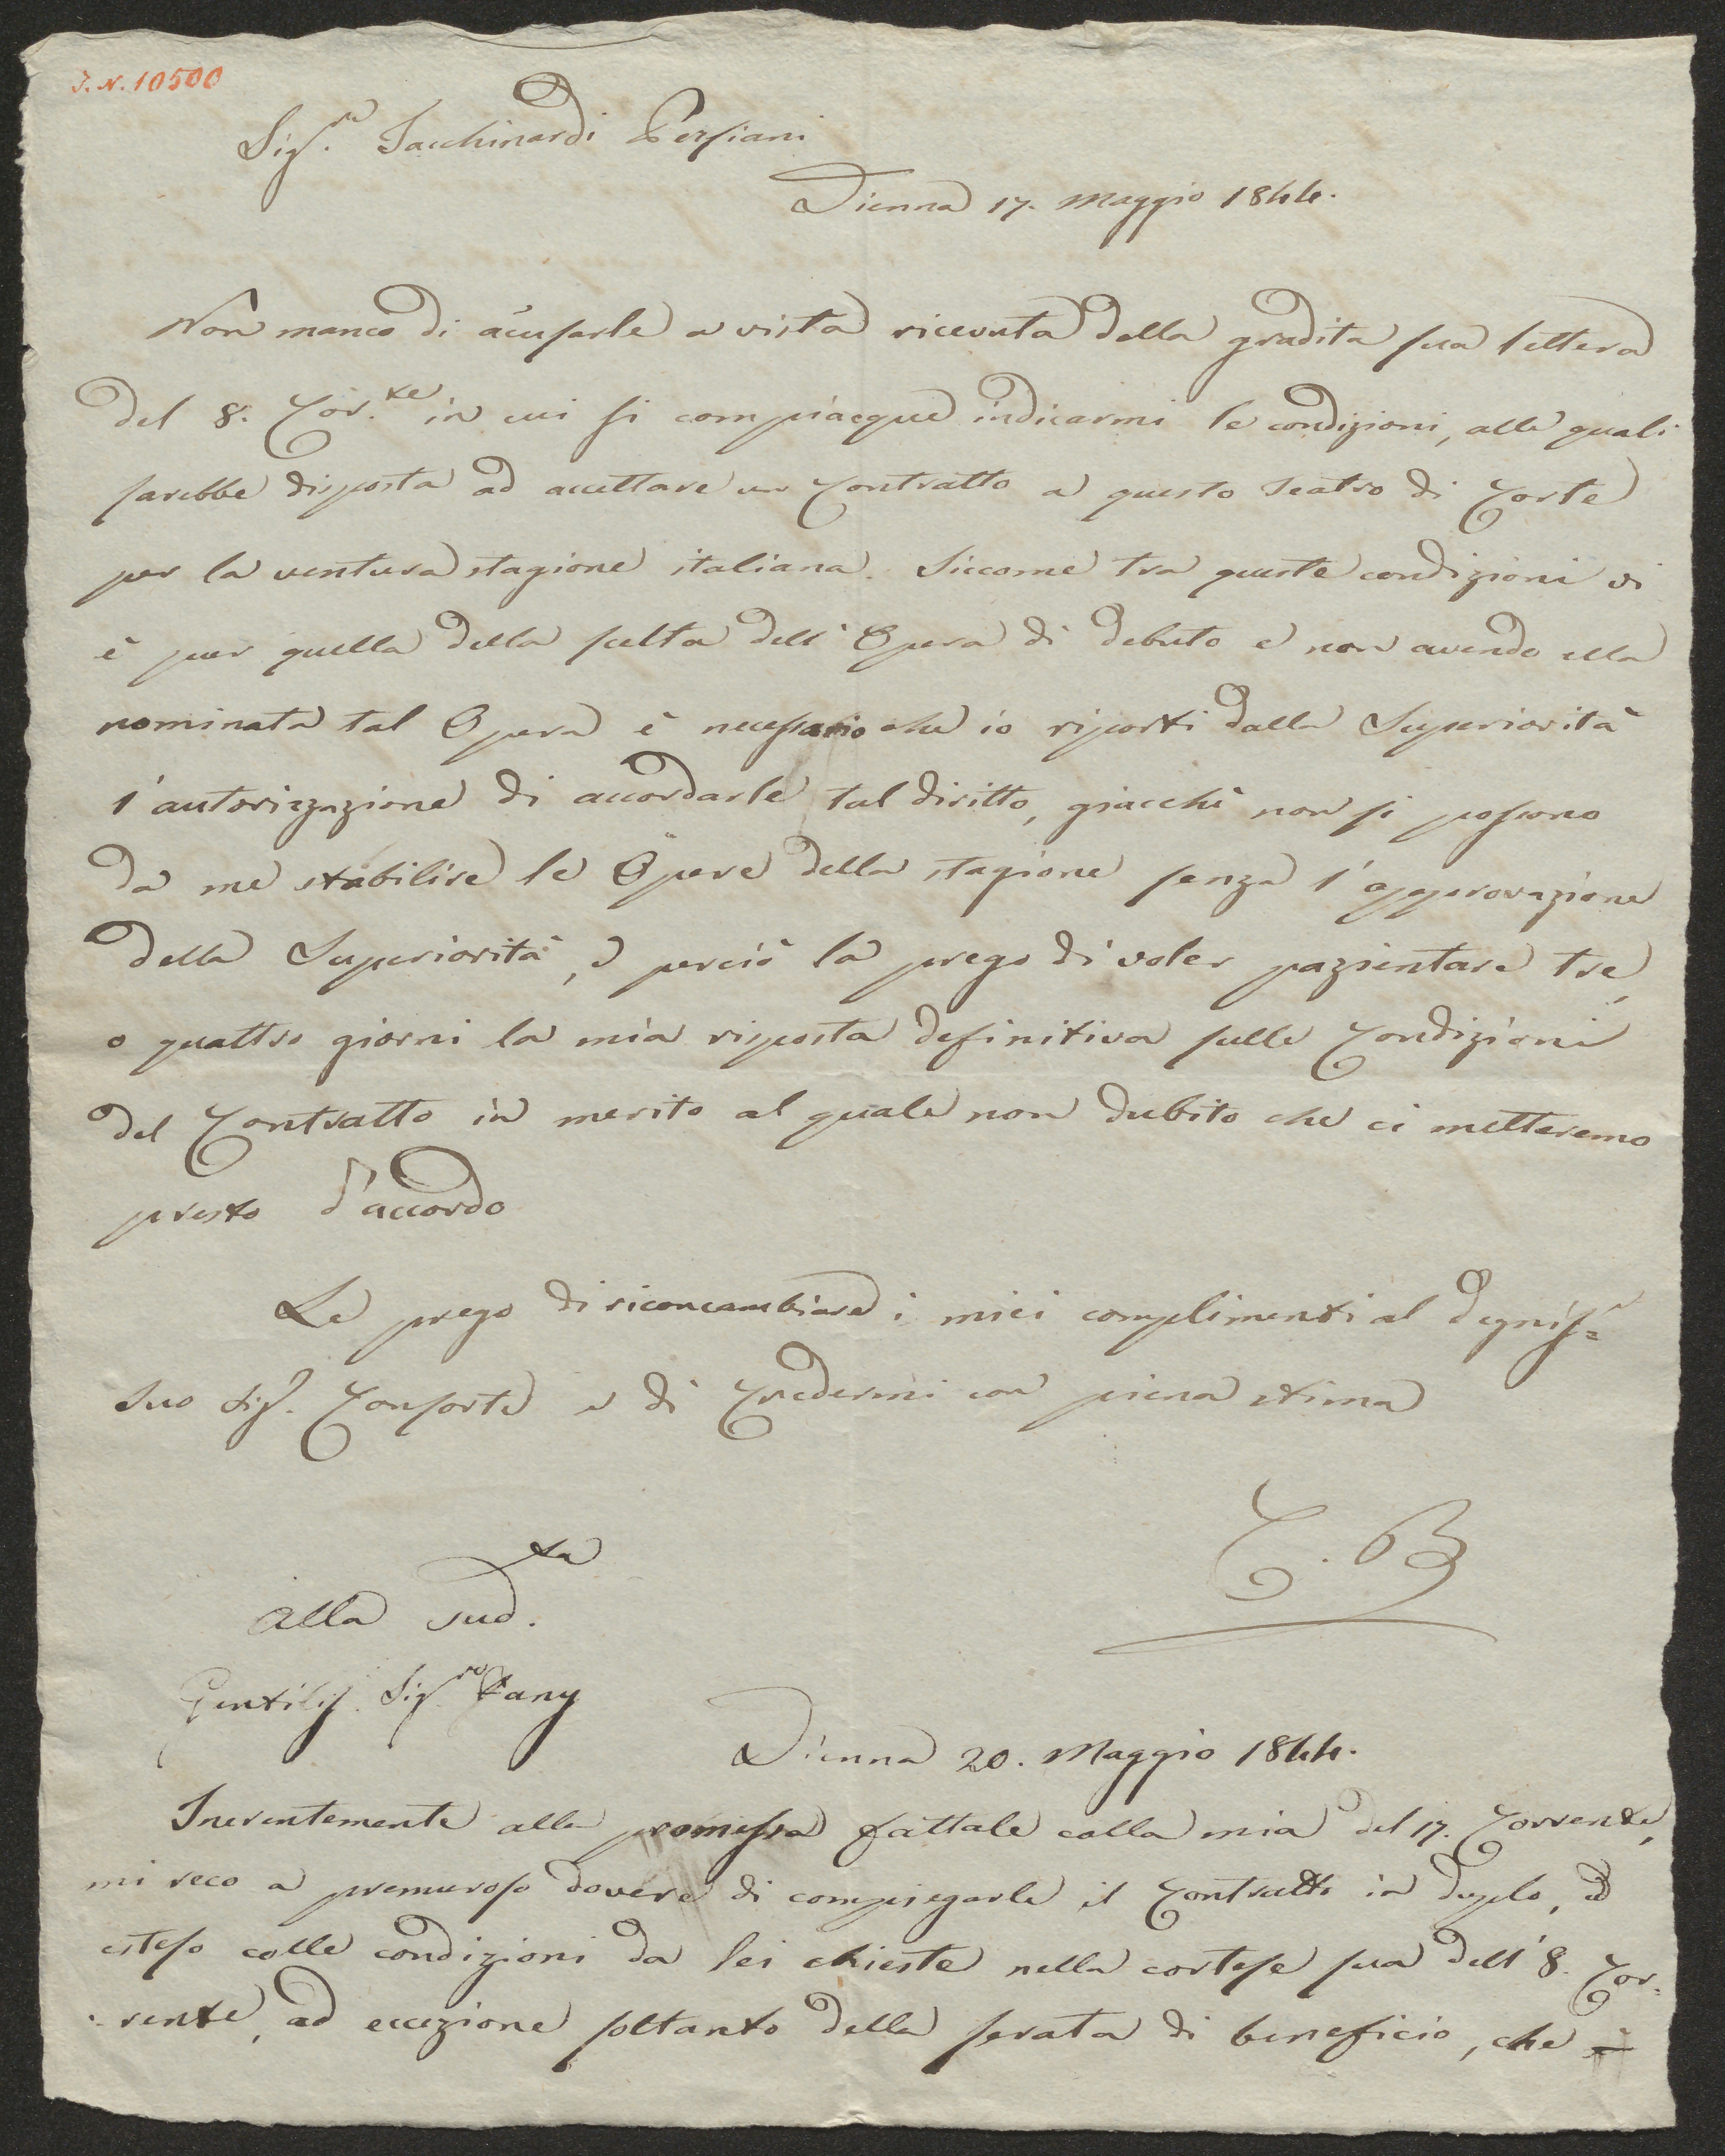 J. N. 10500
Sig.ra Tacchinardi Persiani
Vienna 17. Maggio 1844.
Non manco di accusarle a vista ricevuta della gradita sua lettera
del 8. Cor.te in cui si compiacque indicarmi le condizioni, alle quali
sarebbe disposta ad accettare un Contratto a questo Teatro di Corte
per la ventura stagione italiana. Siccome tra queste condizioni vi
è pur quella della scelta dell' Opera di debuto e non avendo ella
nominata tal Opera è necessario che io riporti dalla Superiorità
l'autorizzazione di accordarle tal diritto, giacchè non si possono
da me stabilire le Opere della stagione senza l'approvazione
della Superiorità, e perciò la prego di voler pazientare tre
o quattro giorni la mia risposta definitiva sulle Condizioni
del Contratto in merito al quale non dubito che ci metteremo
presto d'accordo
La prego di riconcambiare i miei complimenti al degniss.
Suo Sig. Consorte e di Credermi con piena stima
C. B
Alla sud.ta
Gentiliss. Sig.ra Fany
Vienna 20. Maggio 1844.
Inerentemente alla promessa fattale colla mia del 17. Corrente,
mi reco a premuroso dovere di compiegarle il Contratto in duplo,
esteso colle condizioni da lei chieste nella cortese sua dell' 8. Cor-
-rente, ad eccezione soltanto della serata di beneficio, che